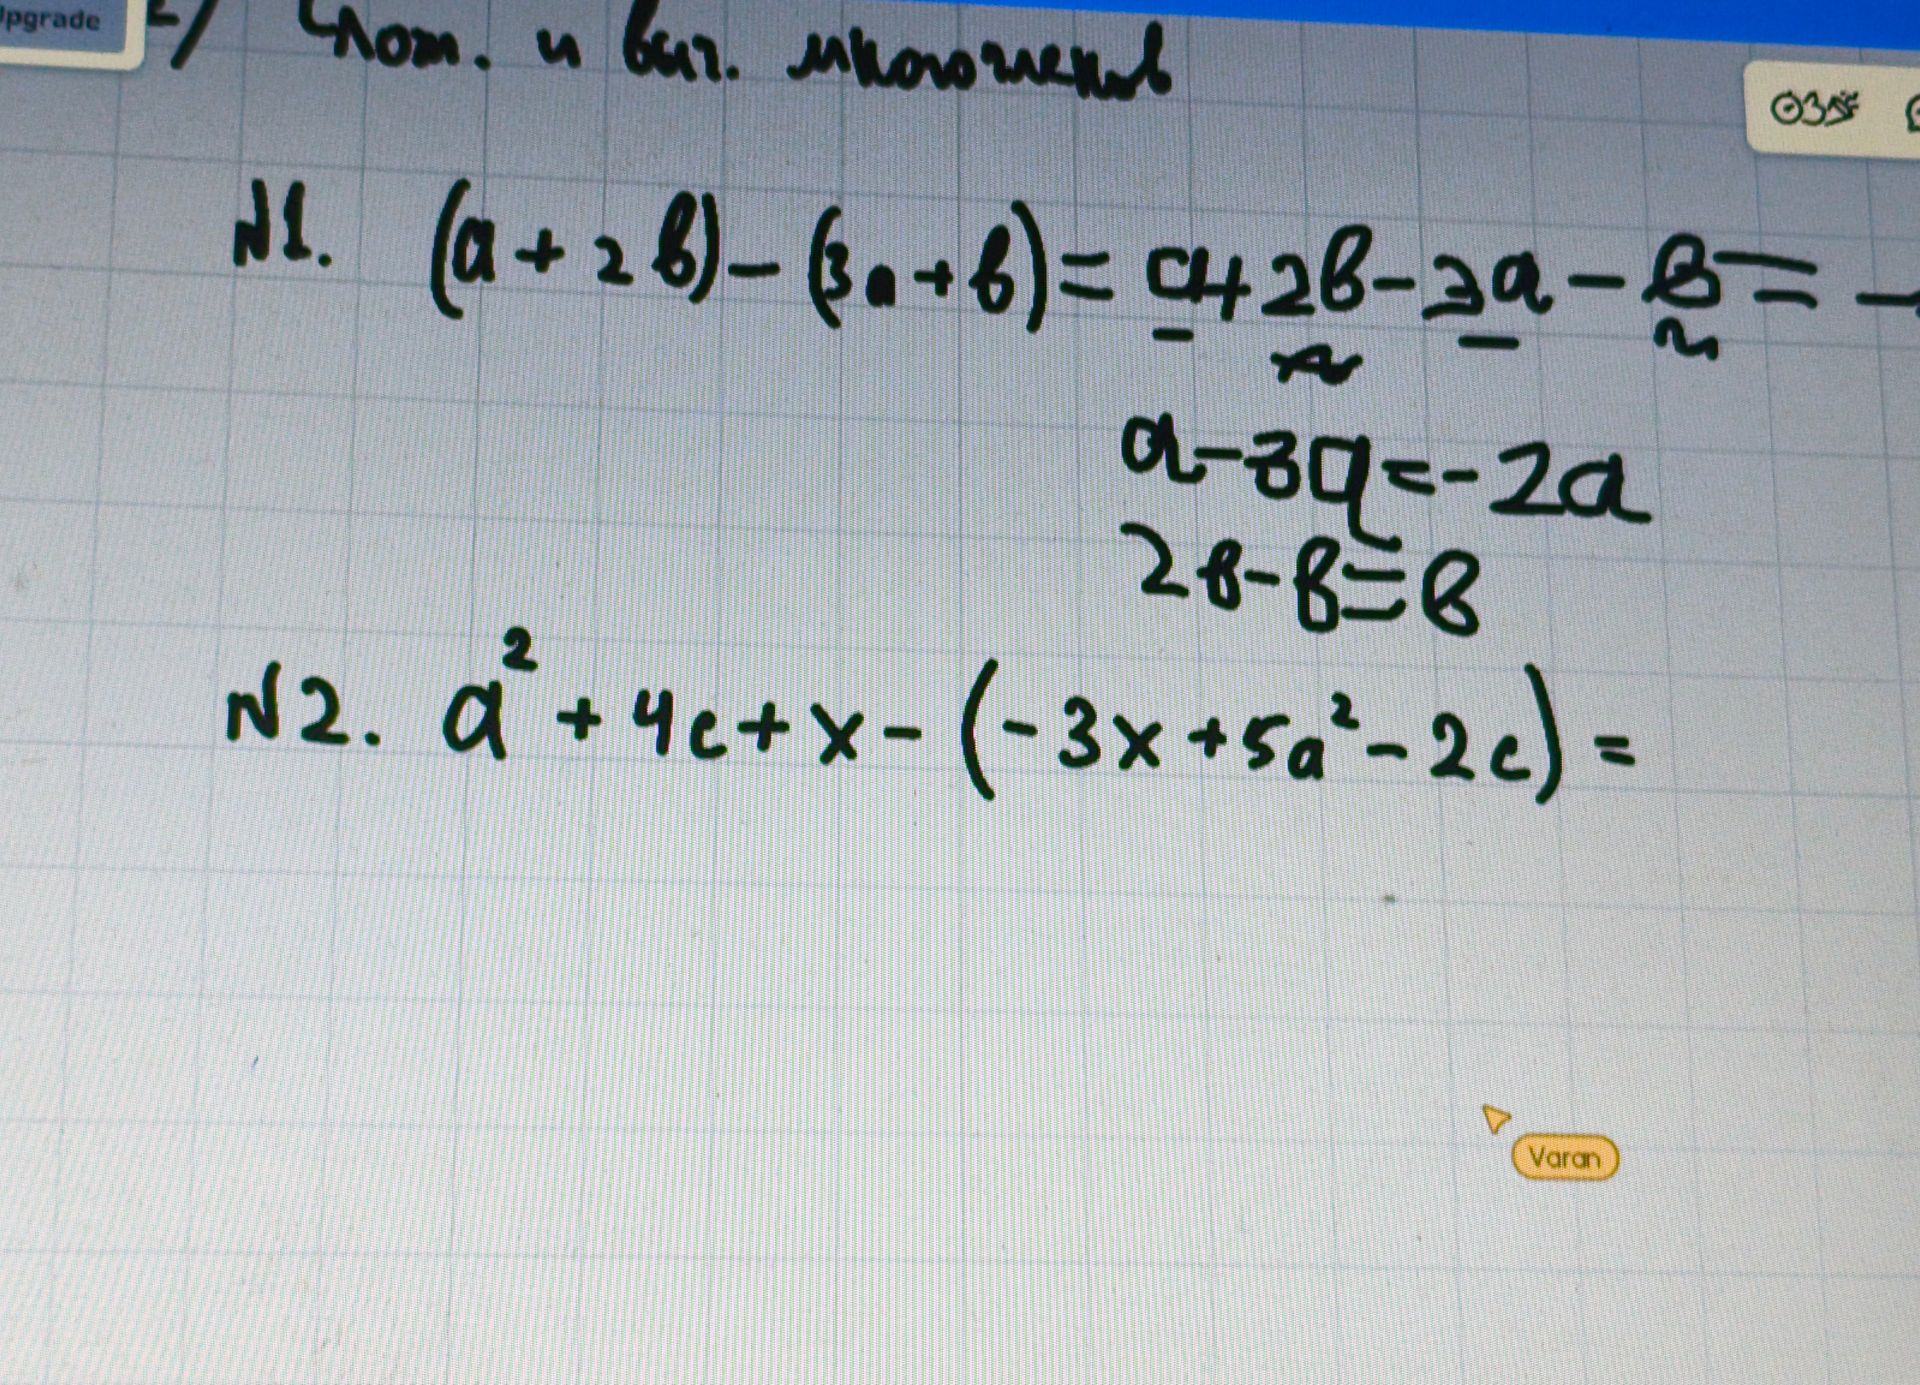 Upgrade
Слож. и выч. многочленов
035
N1. (a + 2b) - (3a + b) = a + 2b - 3a - b = -
a - 3a = -2a
2b - b = b
N2. a² + 4c + x - (-3x + 5a² - 2c) =
Varan